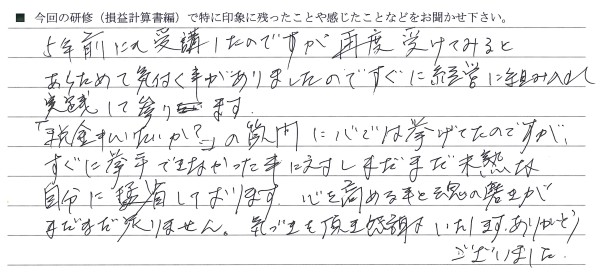 ■ 今回の研修（損益計算書編）で特に印象に残ったことや感じたことなどをお聞かせ下さい。
5年前にも受講したのですが再度受けてみると
あらためて気付く事がありましたのですぐに経営に組み込み
実践して参ります。
「税金払いたいか？」の質問に心では挙げてたのですが、
すぐに挙手できなかった事に対しまだまだ未熟な
自分に猛省しております 心を高める事と魂の磨きが
まだまだ足りません。気づきを頂き感謝いたします。ありがとう
ございました。